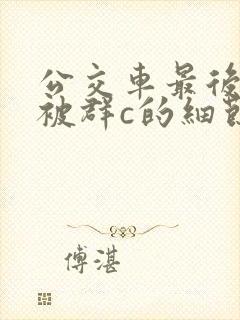 公交車最後
被群c的細節
傅湛